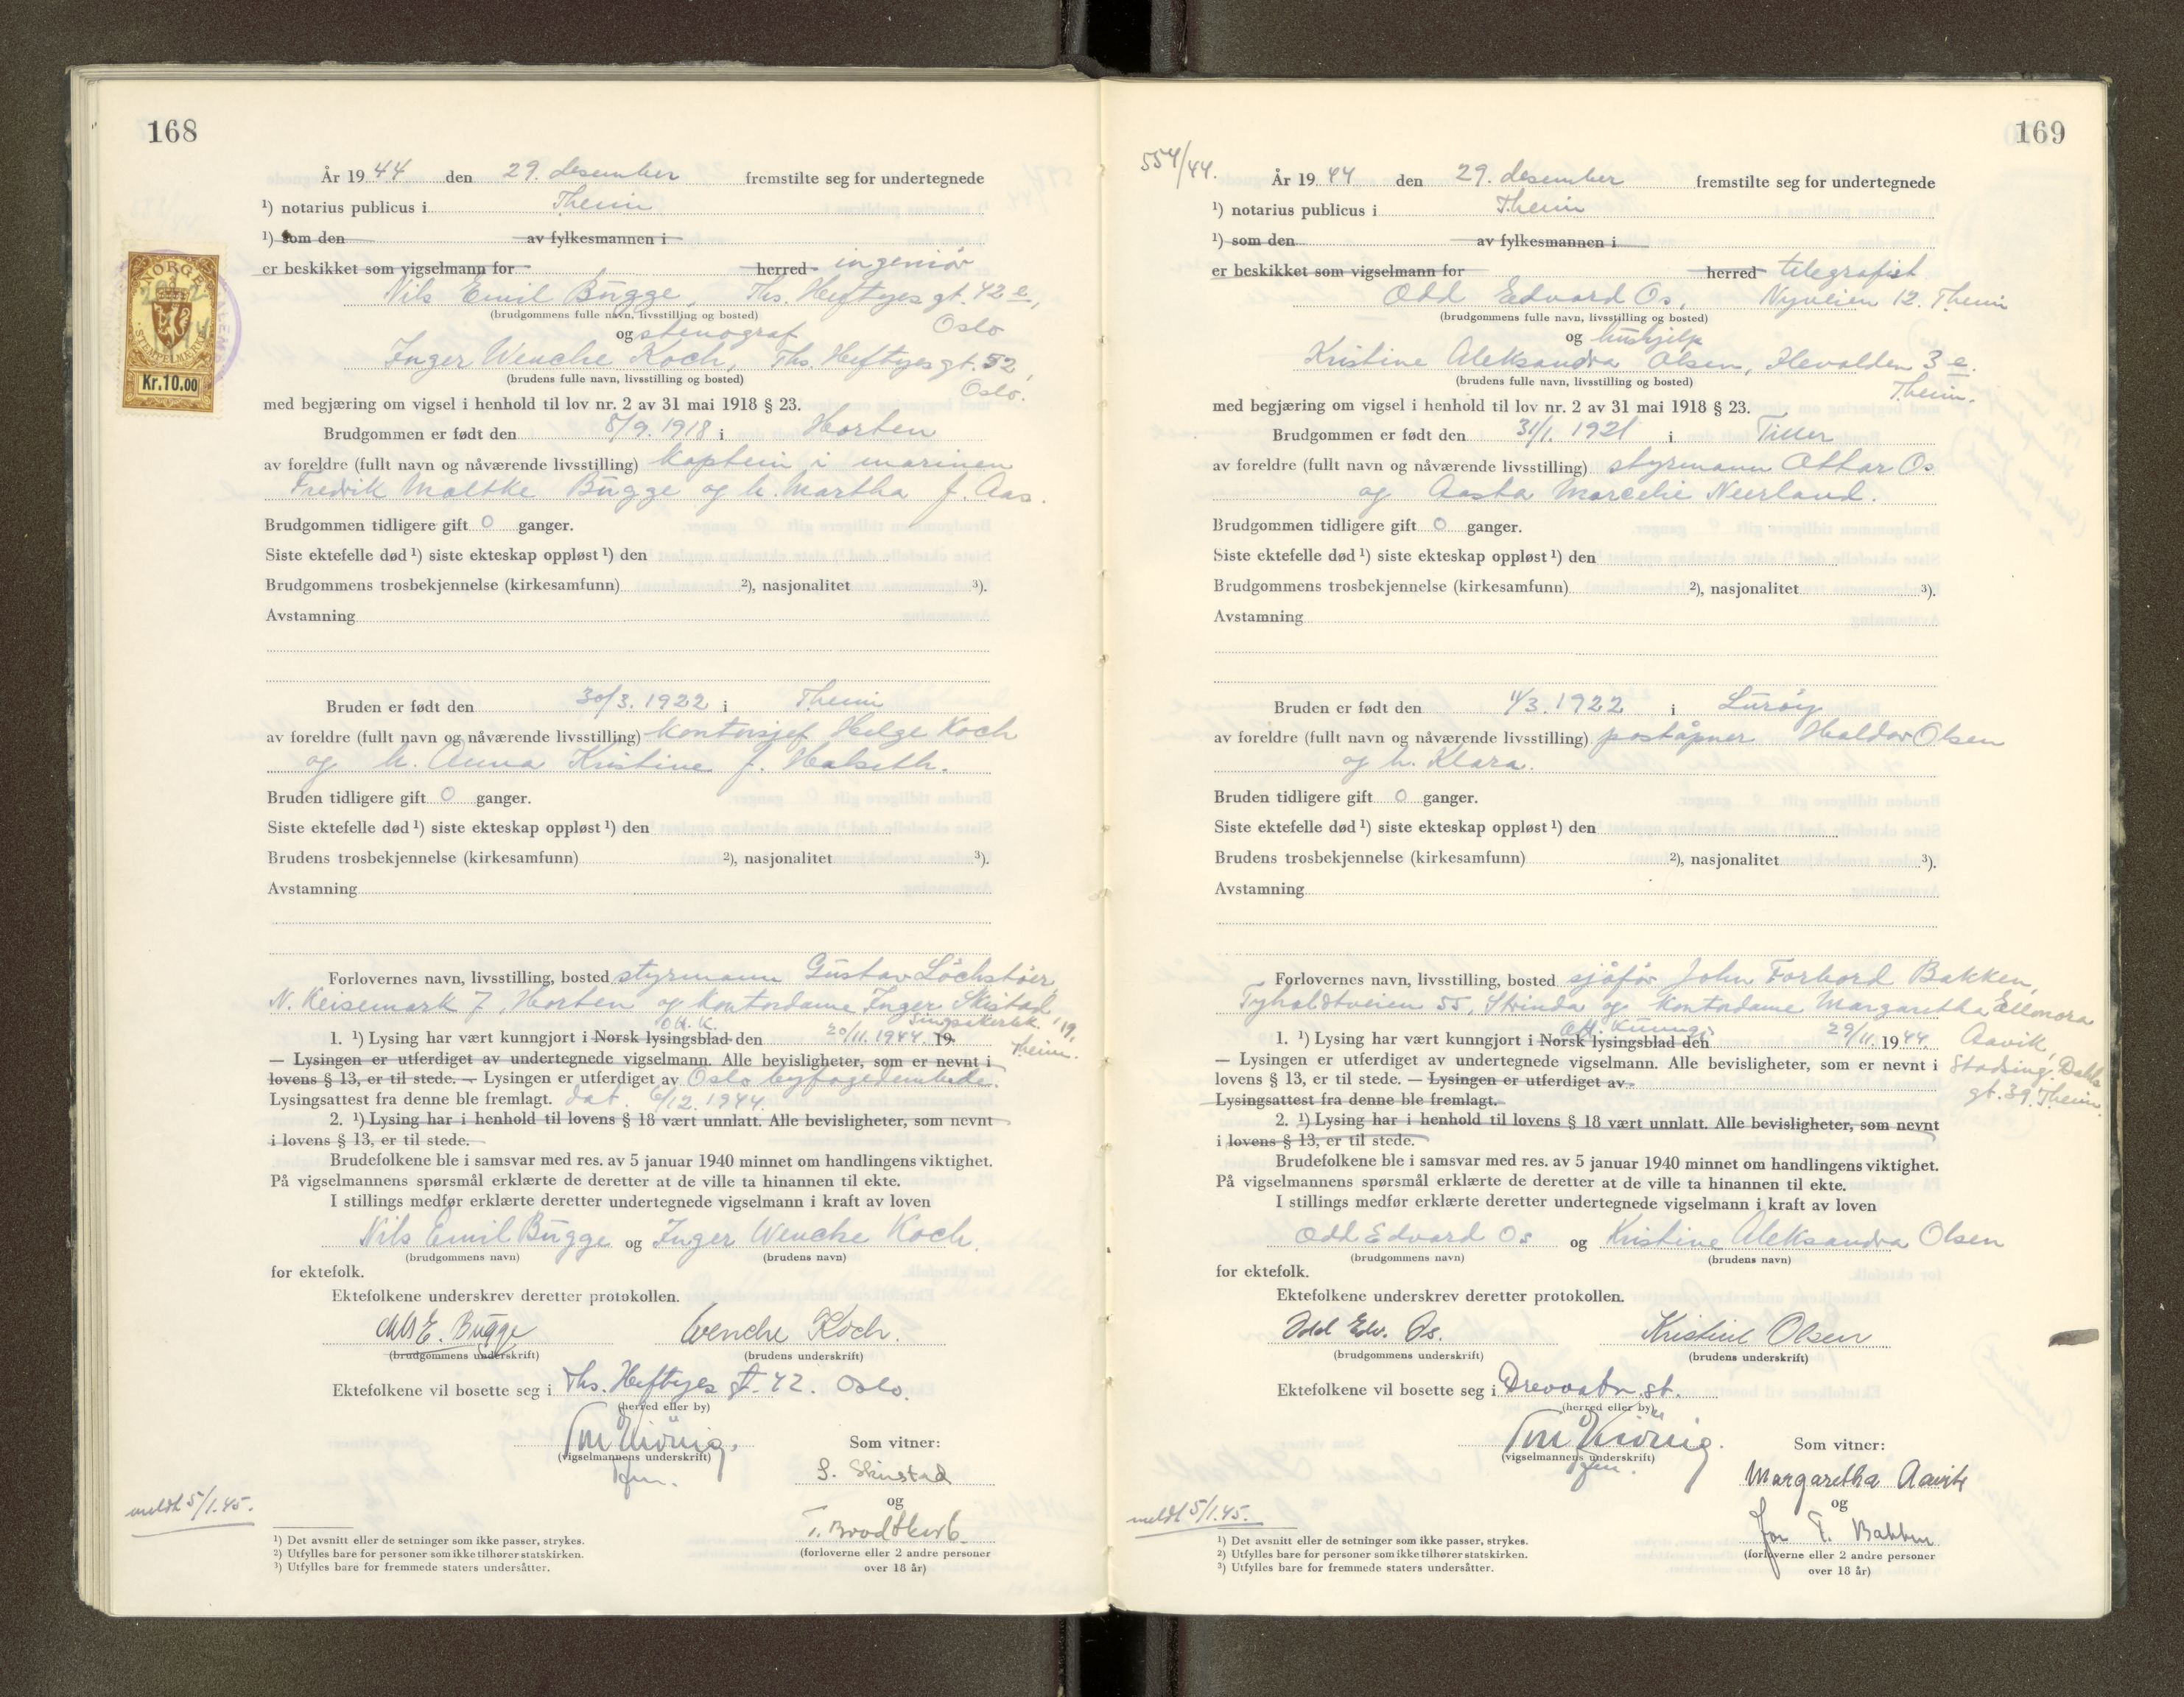 168
År 1944 den 29. desember fremstilte seg for undertegnede
¹) notarius publicus i Theim
¹) som den av fylkesmannen i
er beskikket som vigselmann for herred ingeniör
Nils Emil Bugge, Ths. Heftyes gt. 42 e,
(brudgommens fulle navn, livsstilling og bosted) Oslo
og stenograf
Inger Wenche Koch, Ths. Heftyes gt. 52,
(brudens fulle navn, livsstilling og bosted) Oslo.
med begjæring om vigsel i henhold til lov nr. 2 av 31 mai 1918 § 23.
Brudgommen er født den 8/9. 1918 i Horten
av foreldre (fullt navn og nåværende livsstilling) kaptein i marinen
Fredrik Moltke Bugge og h. Martha f. Aas.
Brudgommen tidligere gift 0 ganger.
Siste ektefelle død ¹) siste ekteskap oppløst ¹) den
Brudgommens trosbekjennelse (kirkesamfunn) ²), nasjonalitet ³).
Avstamning
Bruden er født den 30/3. 1922 i Theim
av foreldre (fullt navn og nåværende livsstilling) kontorsjef Helge Koch
og h. Anna Kristine f. Halseth.
Bruden tidligere gift 0 ganger.
Siste ektefelle død ¹) siste ekteskap oppløst ¹) den
Brudens trosbekjennelse (kirkesamfunn) ²), nasjonalitet ³).
Avstamning
Forlovernes navn, livsstilling, bosted styrmann Gustav Löchstöer,
N. Keisemark 7, Horten og kontordame Inger Skistad,
Singsakerbk. 19, Theim.
O.H.K.
1. ¹) Lysing har vært kunngjort i Norsk lysingsblad den 20/11. 1944. 19.
— Lysingen er utferdiget av undertegnede vigselmann. Alle bevisligheter, som er nevnt i
lovens § 13, er til stede. — Lysingen er utferdiget av Oslo byfogedembede.
Lysingsattest fra denne ble fremlagt. dat. 6/12. 1944.
2. ¹) Lysing har i henhold til lovens § 18 vært unnlatt. Alle bevisligheter, som nevnt
i lovens § 13, er til stede.
Brudefolkene ble i samsvar med res. av 5 januar 1940 minnet om handlingens viktighet.
På vigselmannens spørsmål erklærte de deretter at de ville ta hinannen til ekte.
I stillings medfør erklærte deretter undertegnede vigselmann i kraft av loven
Nils Emil Bugge og Inger Wenche Koch.
(brudgommens navn) (brudens navn)
for ektefolk.
Ektefolkene underskrev deretter protokollen.
Nils E. Bugge Wenche Koch.
(brudgommens underskrift) (brudens underskrift)
Ektefolkene vil bosette seg i Ths. Heftyes gt. 42. Oslo.
(herred eller by)
(vigselmannens underskrift)
Som vitner:
og
T. Brodtkorb
(forloverne eller 2 andre personer
over 18 år)
meldt 5/1.45.
¹) Det avsnitt eller de setninger som ikke passer, strykes.
²) Utfylles bare for personer som ikke tilhører statskirken.
³) Utfylles bare for fremmede staters undersåtter.
NORGE
STEMPELMERKE
Kr.10.00
169
554/44.
År 1944 den 29. desember fremstilte seg for undertegnede
¹) notarius publicus i Theim
¹) som den av fylkesmannen i
er beskikket som vigselmann for herred telegrafist
Odd Edvard Os, Nyveien 12. Theim
(brudgommens fulle navn, livsstilling og bosted)
og hushjelp
Kristine Aleksandra Olsen, Ilevolden 3 e.
(brudens fulle navn, livsstilling og bosted) Theim.
med begjæring om vigsel i henhold til lov nr. 2 av 31 mai 1918 § 23.
Brudgommen er født den 31/1. 1921 i Tiller
av foreldre (fullt navn og nåværende livsstilling) styrmann Ottar Os
og Aasta Marcelie Neerland.
Brudgommen tidligere gift 0 ganger.
Siste ektefelle død ¹) siste ekteskap oppløst ¹) den
Brudgommens trosbekjennelse (kirkesamfunn) ²), nasjonalitet ³).
Avstamning
Bruden er født den 11/3. 1922 i Luröy
av foreldre (fullt navn og nåværende livsstilling) poståpner Haldor Olsen
og h. Klara.
Bruden tidligere gift 0 ganger.
Siste ektefelle død ¹) siste ekteskap oppløst ¹) den
Brudens trosbekjennelse (kirkesamfunn) ²), nasjonalitet ³).
Avstamning
Forlovernes navn, livsstilling, bosted sjåför John Forbord Bakken,
Tyholdtveien 55, Strinda og kontordame Margaretha Ellenora
Aavik, Stadsing. Dahls gt. 39. Theim.
Off. kunng.
1. ¹) Lysing har vært kunngjort i Norsk lysingsblad den 29/11. 1944.
— Lysingen er utferdiget av undertegnede vigselmann. Alle bevisligheter, som er nevnt i
lovens § 13, er til stede. — Lysingen er utferdiget av
Lysingsattest fra denne ble fremlagt.
2. ¹) Lysing har i henhold til lovens § 18 vært unnlatt. Alle bevisligheter, som nevnt
i lovens § 13, er til stede.
Brudefolkene ble i samsvar med res. av 5 januar 1940 minnet om handlingens viktighet.
På vigselmannens spørsmål erklærte de deretter at de ville ta hinannen til ekte.
I stillings medfør erklærte deretter undertegnede vigselmann i kraft av loven
Odd Edvard Os og Kristine Aleksandra Olsen
(brudgommens navn) (brudens navn)
for ektefolk.
Ektefolkene underskrev deretter protokollen.
Odd Edv. Os. Kristine Olsen
(brudgommens underskrift) (brudens underskrift)
Ektefolkene vil bosette seg i Drevvatn st.
(herred eller by)
(vigselmannens underskrift)
Som vitner:
Margaretha Aavik
og
Jon F. Bakken
(forloverne eller 2 andre personer
over 18 år)
meldt 5/1.45.
¹) Det avsnitt eller de setninger som ikke passer, strykes.
²) Utfylles bare for personer som ikke tilhører statskirken.
³) Utfylles bare for fremmede staters undersåtter.